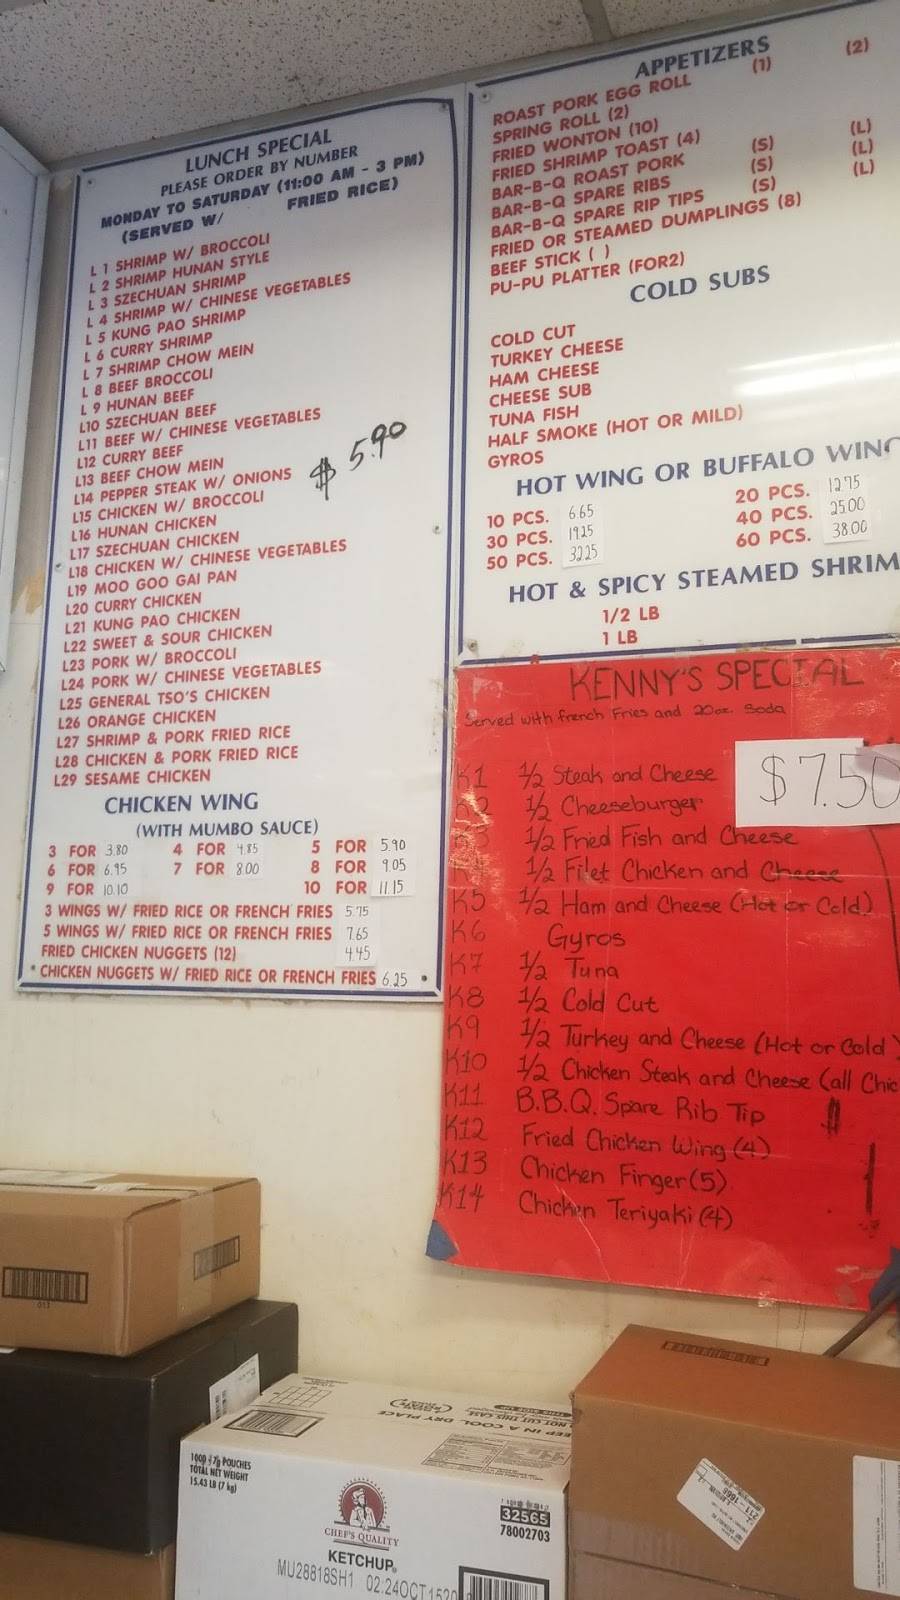 LUNCH SPECIAL
PLEASE ORDER BY NUMBER
MONDAY TO SATURDAY (11:00 AM - 3 PM)
(SERVED W/ FRIED RICE)
L 1 SHRIMP W/ BROCCOLI
L 2 SHRIMP HUNAN STYLE
L 3 SZECHUAN SHRIMP
L 4 SHRIMP W/ CHINESE VEGETABLES
L 5 KUNG PAO SHRIMP
L 6 CURRY SHRIMP
L 7 SHRIMP CHOW MEIN
L 8 BEEF BROCCOLI
L 9 HUNAN BEEF
L10 SZECHUAN BEEF
L11 BEEF W/ CHINESE VEGETABLES
L12 CURRY BEEF
L13 BEEF CHOW MEIN
L14 PEPPER STEAK W/ ONIONS
L15 CHICKEN W/ BROCCOLI
L16 HUNAN CHICKEN
L17 SZECHUAN CHICKEN
L18 CHICKEN W/ CHINESE VEGETABLES
L19 MOO GOO GAI PAN
L20 CURRY CHICKEN
L21 KUNG PAO CHICKEN
L22 SWEET & SOUR CHICKEN
L23 PORK W/ BROCCOLI
L24 PORK W/ CHINESE VEGETABLES
L25 GENERAL TSO'S CHICKEN
L26 ORANGE CHICKEN
L27 SHRIMP & PORK FRIED RICE
L28 CHICKEN & PORK FRIED RICE
L29 SESAME CHICKEN
$ 5.90
CHICKEN WING
(WITH MUMBO SAUCE)
3 FOR 3.80 4 FOR 4.85 5 FOR 5.90
6 FOR 6.95 7 FOR 8.00 8 FOR 9.05
9 FOR 10.10 10 FOR 11.15
3 WINGS W/ FRIED RICE OR FRENCH FRIES 5.75
5 WINGS W/ FRIED RICE OR FRENCH FRIES 7.65
FRIED CHICKEN NUGGETS (12) 4.45
CHICKEN NUGGETS W/ FRIED RICE OR FRENCH FRIES 6.25
APPETIZERS
ROAST PORK EGG ROLL (1) (2)
SPRING ROLL (2)
FRIED WONTON (10)
FRIED SHRIMP TOAST (4)
BAR-B-Q ROAST PORK (S) (L)
BAR-B-Q SPARE RIBS (S) (L)
BAR-B-Q SPARE RIP TIPS (S) (L)
FRIED OR STEAMED DUMPLINGS (8)
BEEF STICK ( )
PU-PU PLATTER (FOR2)
COLD SUBS
COLD CUT
TURKEY CHEESE
HAM CHEESE
CHEESE SUB
TUNA FISH
HALF SMOKE (HOT OR MILD)
GYROS
HOT WING OR BUFFALO WING
10 PCS. 6.65 20 PCS. 12.75
30 PCS. 19.25 40 PCS. 25.00
50 PCS. 32.25 60 PCS. 38.00
HOT & SPICY STEAMED SHRIM
1/2 LB
1 LB
KENNY'S SPECIAL
Served with french Fries and 20oz. Soda
$7.50
K1 1/2 Steak and Cheese
K2 1/2 Cheeseburger
K3 1/2 Fried Fish and Cheese
K4 1/2 Filet Chicken and Cheese
K5 1/2 Ham and Cheese (Hot or Cold)
K6 Gyros
K7 1/2 Tuna
K8 1/2 Cold Cut
K9 1/2 Turkey and Cheese (Hot or Cold)
K10 1/2 Chicken Steak and Cheese (all Chic
K11 B.B.Q. Spare Rib Tip
K12 Fried Chicken Wing (4)
K13 Chicken Finger (5)
K14 Chicken Teriyaki (4)
TOTAL NET WEIGHT
15.43 LB (7 kg)
CHEF'S QUALITY
KETCHUP
MU28818SH1 02:24OCT1520
32565
78002703